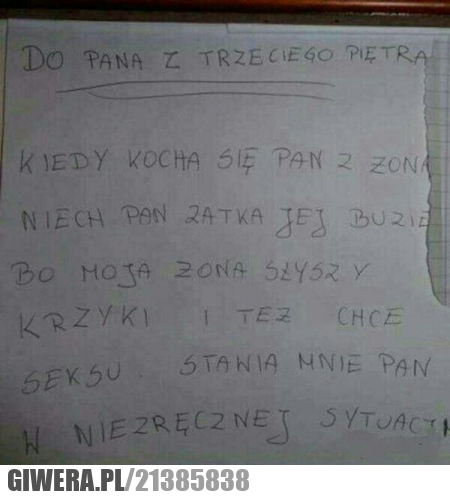 DO PANA Z TRZECIEGO PIĘTRA
KIEDY KOCHA SIĘ PAN Z ZONĄ
NIECH PAN ZATKA JEJ BUZIE
BO MOJA ZONA SŁYSZY
KRZYKI I TEZ CHCE
SEKSU. STAWIA MNIE PAN
W NIEZRĘCZNEJ SYTUACJI
GIWERA.PL/21385838